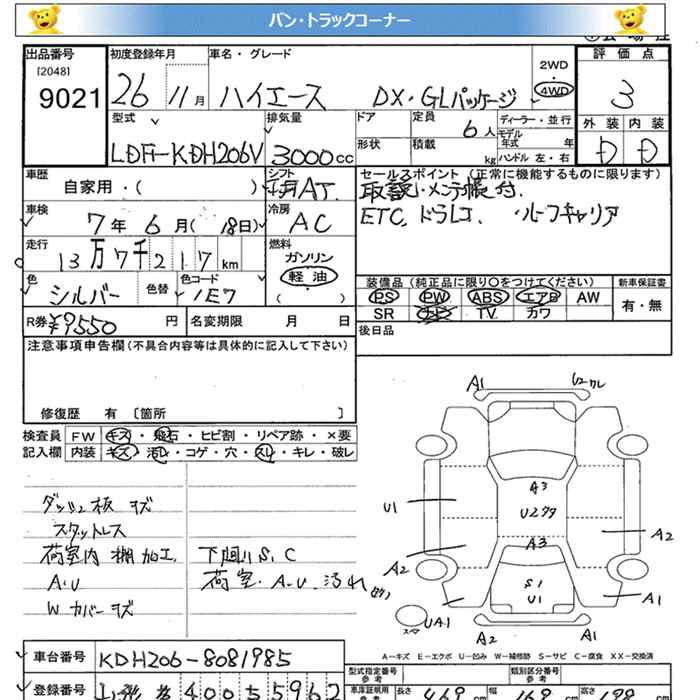 バン・トラックコーナー
出品番号 初度登録年月 車名・グレード 評価点
[2048]
9021 26 11月 ハイエース DX・GLパッケージ 2WD 4WD 3
型式 排気量 ドア 定員 6人 ディーラー・並行 外装 内装
LDF-KDH206V 3000cc 形状 積載 kg モデル年式 年 ハンドル 左・右 D D
車歴 自家用・( ) シフト AT
セールスポイント (正常に機能するものに限ります)
取説・メンテ帳付.
車検 7年 6月 (18日) 冷房 AC
ETC. ドラレコ. ・ルーフキャリア
走行 13万7千217km 燃料 ガソリン 軽油 ( )
色 シルバー 色替 色コード 1E7
装備品 (純正品に限り○をつけてください) 新車保証書
PS PW ABS エアB AW 有・無
SR ナビ TV カワ
R券 ¥9550円 名変期限 月 日 後日品
注意事項申告欄 (不具合内容等は具体的に記入して下さい)
修復歴 有 〔箇所 〕
検査員 FW キズ・飛石・ヒビ割・リペア跡・×要
記入欄 内装 キズ・汚レ・コゲ・穴・スレ・キレ・破レ
ダッシュ板 キズ
スタットレス
荷室内 棚加工. 下廻り S.C
A・U 荷室・A-U.汚れ
Wカバーキズ
A1 U2ワレ
A3
U1 U2クク
A2 A3 A2
S1
U1
UA1 A1
スペア A2 A1
A-キズ E-エクボ U-凹み W-補修跡 S-サビ C-腐食 XX-交換済
車台番号 KDH206-8081985
型式指定番号 参考 類別区分番号 参考
登録番号 400 55962
車庫証明用 長さ 469cm 幅 169cm 高さ 198cm